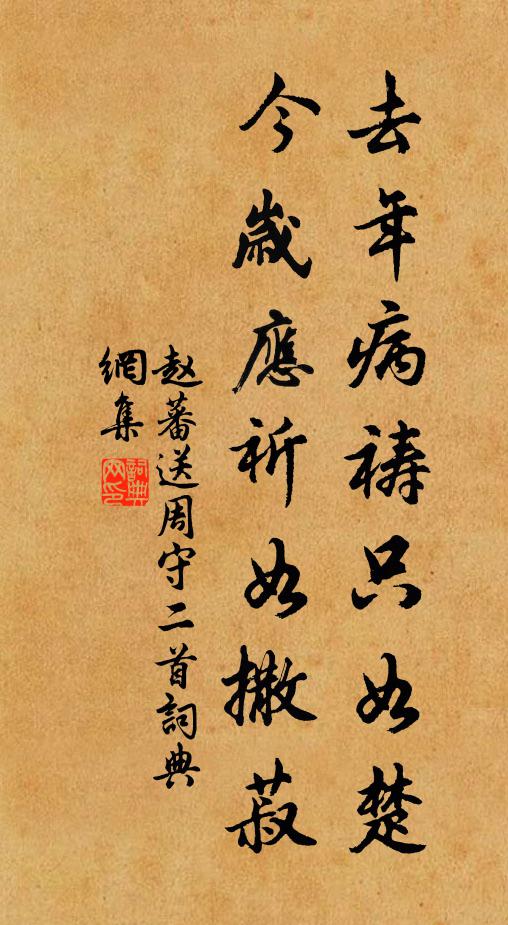 去年病禱只如楚
今歲應祈如撒菽
赵蕃送周守二首詞典
網集
詞典網印